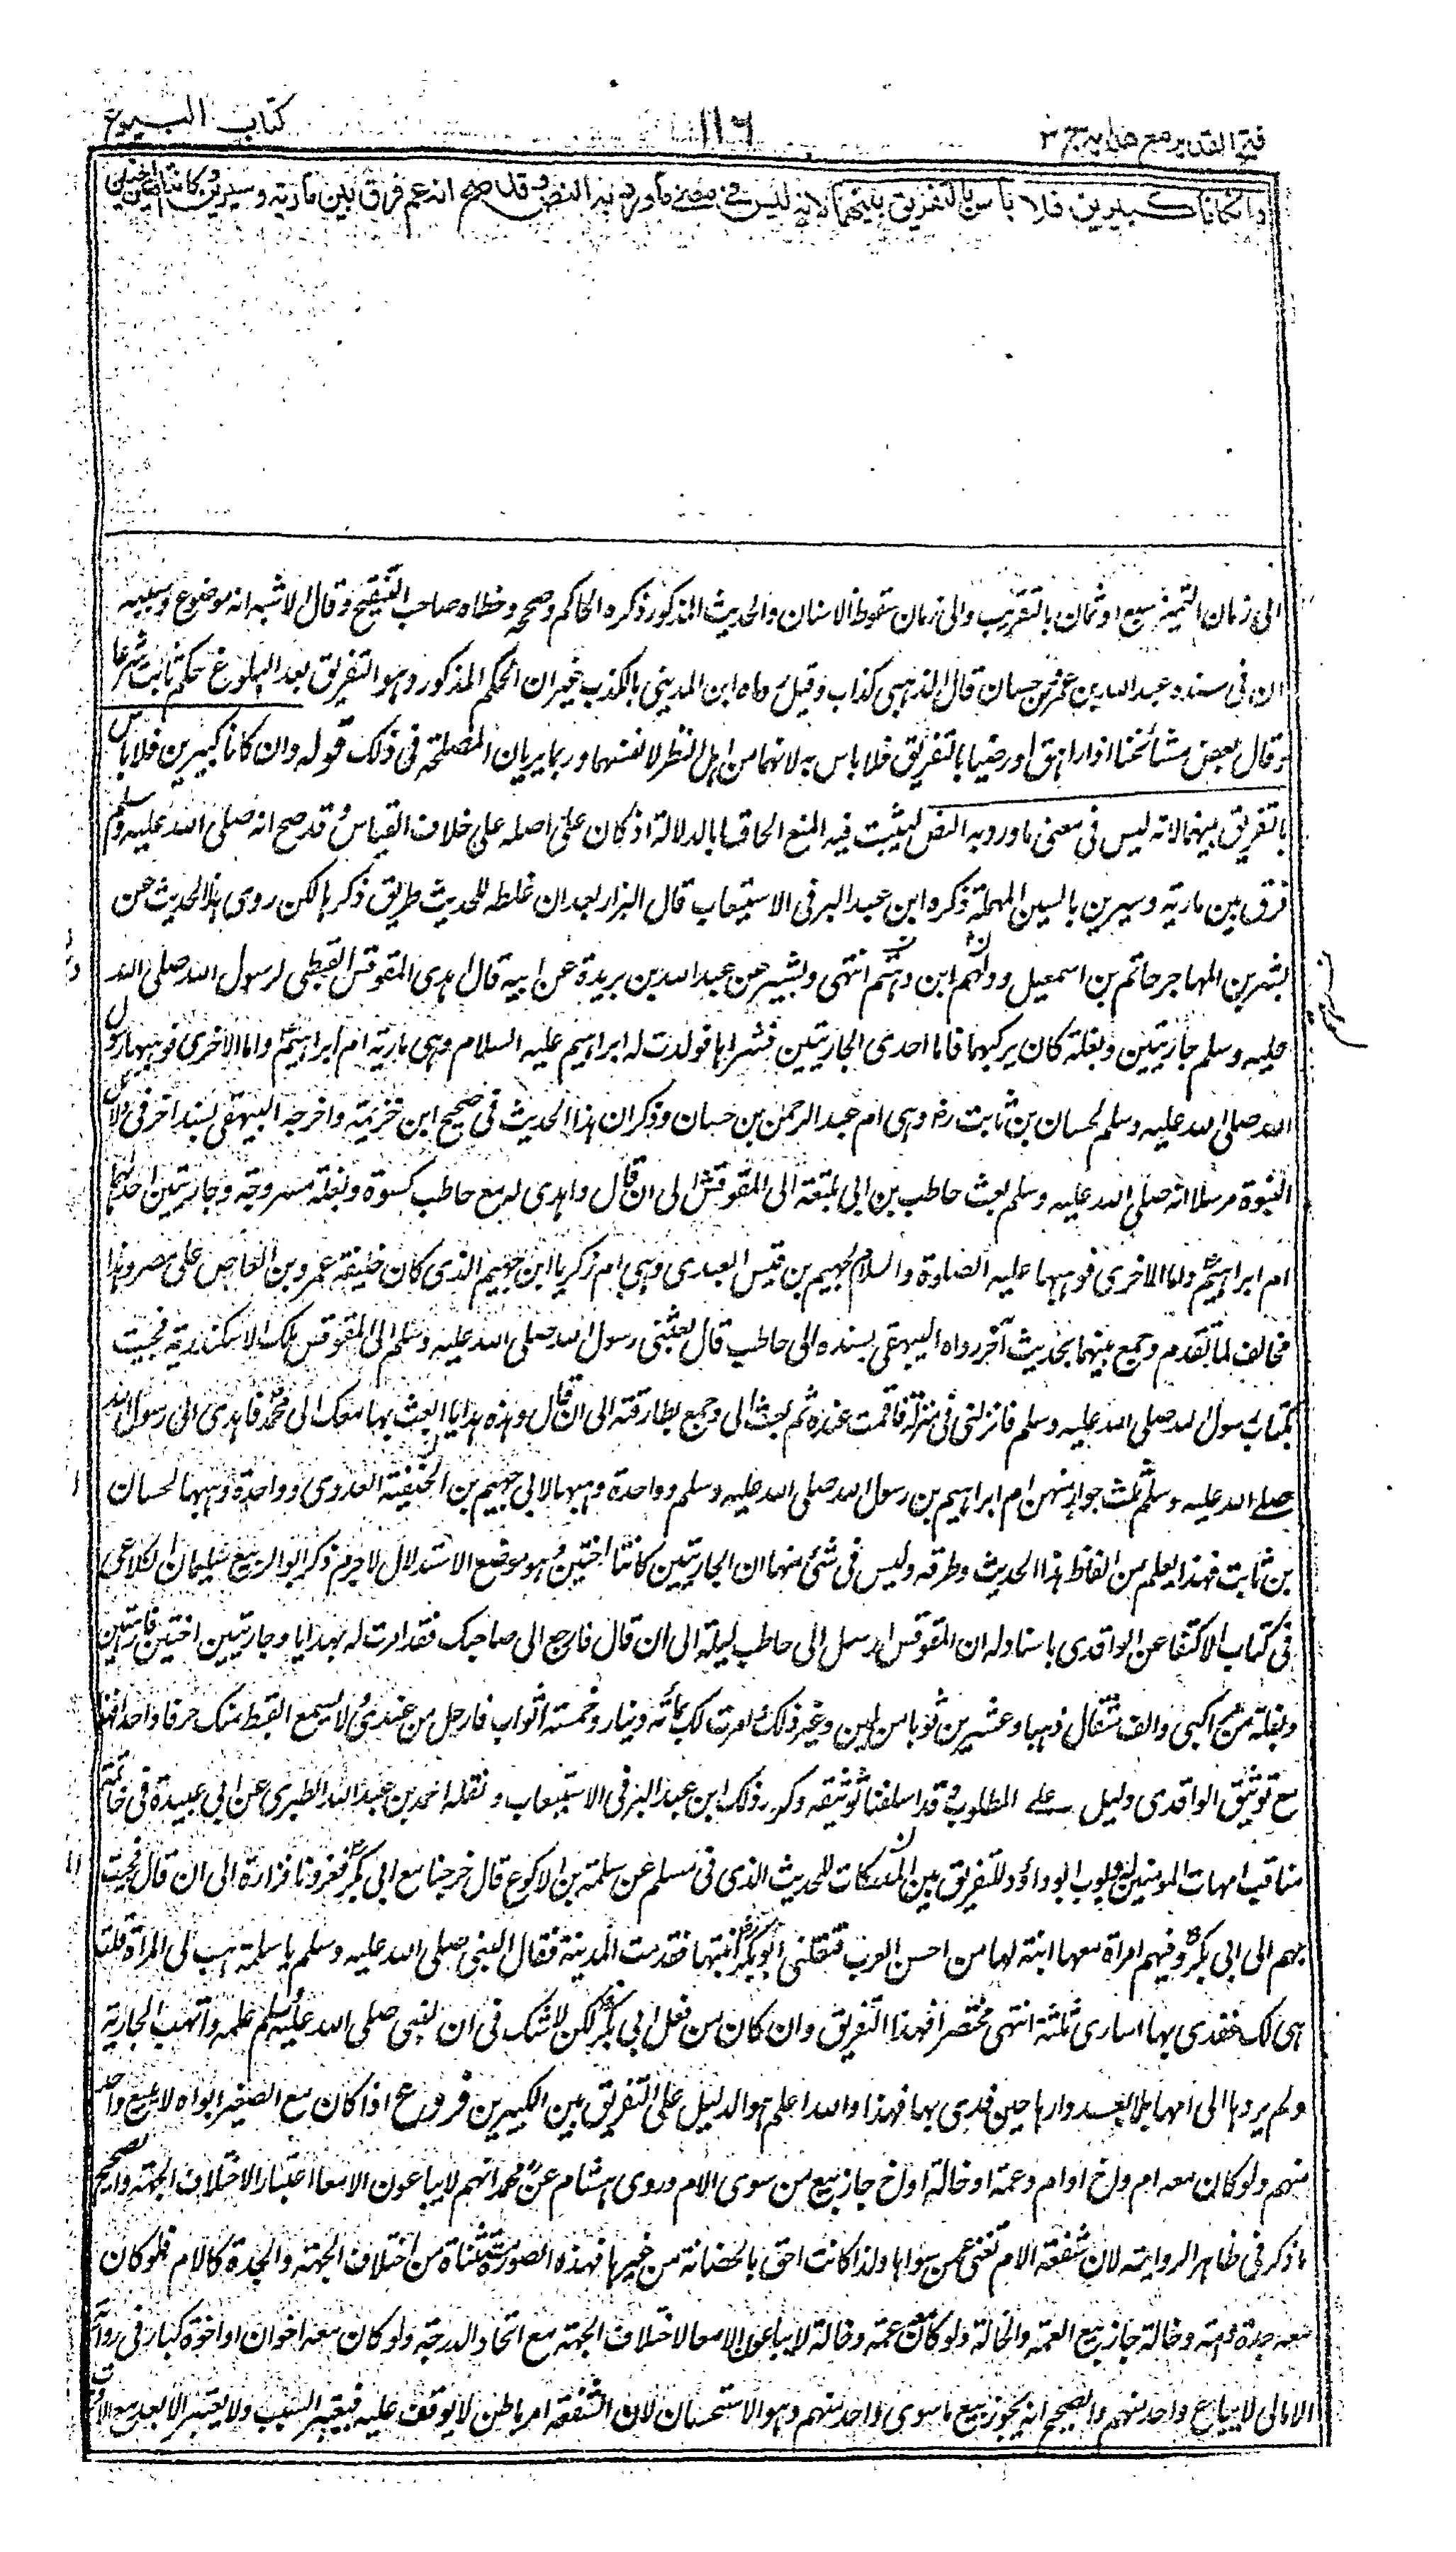 فتح القدير مع هدايه ج ٣
١١٦
كتاب البيوع
وان كانا كبيرين فلا باس بالتفريق بينهما لانه ليس في معنى ما ورد به النص وقد صح انه عم فرق بين مارية وسيرين وكانتا امتين اختين
الى زمان التميز سبع او ثمان بالتقريب والى زمان سقوط الاسنان والحديث المذكور ذكره الحاكم وصححه وخطاه صاحب التنقيح وقال لاشبه انه موضوع وسببه
ان فى سنده عبد الله بن عمرو بن حسان قال الذهبى كذاب وقيل رماه ابن المدينى بالكذب غير ان الحكم المذكور وهو التفريق بعد البلوغ حكم ثابت شرعا
وقال بعض مشائخنا اذا راهق اورضيا بالتفريق فلا باس به لانهما من اهل النظر لانفسهما وربما يريان المصلحة فى ذلك قوله وان كانا كبيرين فلا باس
بالتفريق بينهما لانه ليس فى معنى ما ورد به النص ليثبت فيه المنع الحاقا بالدلالة اذ كان على اصله على خلاف القياس وقد صح انه صلى الله عليه وسلم
فرق بين مارية وسيرين بالسين المهملة ذكره ابن عبد البر فى الاستيعاب قال البزار بعد ان غلطه للحديث طريق ذكرها لكن روى هذا الحديث عن
بشير بن المهاجر حاتم بن اسمعيل ودلهم ابن دهثم انتهى وبشير عن عبد الله بن بريدة عن ابيه قال اهدى المقوقس القبطى لرسول الله صلى الله
عليه وسلم جاريتين وبغلة كان يركبها فاما احدى الجاريتين فتسراها فولدت له ابراهيم عليه السلام وهى مارية ام ابراهيم واما الاخرى فوهبها رسول
الله صلى الله عليه وسلم لحسان بن ثابت رض وهى ام عبد الرحمن بن حسان وذكر ان هذا الحديث فى صحيح ابن خزيمة واخرجه البيهقى بسند اخر فى دلائل
النبوة مرسلا انه صلى الله عليه وسلم بعث حاطب بن ابى بلتعة الى المقوقس الى ان قال واهدى له مع حاطب كسوة وبغلة مسروجة وجاريتين احدهما
ام ابراهيم واما الاخرى فوهبها عليه الصلوة والسلام لجهيم بن قيس العبدى وهى ام زكريا ابن جهيم الذى كان خليفة عمرو بن العاص على مصر وهذا
مخالف لما تقدم وجمع بينهما بحديث آخر رواه البيهقى بسنده الى حاطب قال بعثنى رسول الله صلى الله عليه وسلم الى المقوقس ملك الاسكندرية فجيت
بكتاب رسول الله صلى الله عليه وسلم فانزلنى فى منزله فاقمت عنده ثم بعث الى وجمع بطارقته الى ان قال وهذه هدايا ابعث بها معك الى محمد فاهدى الى رسول الله
صلى الله عليه وسلم ثلث جوار منهن ام ابراهيم بن رسول الله صلى الله عليه وسلم وواحدة وهبها لابى جهيم بن الحذيفة العدوى وواحدة وهبها لحسان
بن ثابت فهذا يعلم من الفاظ هذا الحديث وطرقه وليس فى شئ منها ان الجاريتين كانتا اختين وهو موضع الاستدلال لا جرم ذكر ابو الربيع سليمان الكلاعى
فى كتاب الاكتفا عن الواقدى باسناد له ان المقوقس ارسل الى حاطب ليلة الى ان قال فارجع الى صاحبك فقد امرت له بهدايا وجاريتين اختين فارهتين
وبغلة من مراكبى والف مثقال ذهبا وعشرين ثوبا من لين وغير ذلك وامرت لك بمائة دينار وخمسة اثواب فارحل من عندى ولا يسمع القبط منك حرفا واحدا فهذا
مع توثيق الواقدى دليل على المطلوب وقد اسلفنا توثيقه وكرر ذلك ابن عبد البر فى الاستيعاب ونقله احمد بن عبد الله الطبرى عن ابى عبيدة فى خاتمة
مناقب امهات المومنين وبوب ابو داؤد للتفريق بين المدركات للحديث الذى فى مسلم عن سلمة بن الاكوع قال خرجنا مع ابى بكر فغزونا فزارة الى ان قال فجيت
بهم الى ابى بكر وفيهم امراة معها ابنة لها من احسن العرب فنفلنى ابو بكر ابنتها فقدمت المدينة فقال النبى صلى الله عليه وسلم يا سلمة هب لى المراة قلت
هى لك ففدى بها اسارى ثلثة انتهى مختصرا فهذا التفريق وان كان من فعل ابى بكر لكن لا شك فى ان النبى صلى الله عليه وسلم علمه واتهب الجارية
ولم يردها الى امها بل ابعد دارها حين فدى بها فهذا والله اعلم هو الدليل على التفريق بين الكبيرين فروع اذا كان مع الصغير ابواه لا يبيع واحد
منهم ولو كان معه ام واخ او ام وعمة او خالة او اخ جاز بيع من سوى الام وروى هشام عن محمد انهم لا يباعون الا معا اعتبارا لاختلاف الجهة والصحيح
ما ذكر فى ظاهر الرواية لان شفقة الام تغنى عمن سواها ولذا كانت احق بالحضانة من غيرها فهذه الصورة مستثناة من اختلاف الجهة والجدة كالام فلو كان
معه جدة وعمة وخالة جاز بيع العمة والخالة ولو كان معه عمة وخالة لا يباعون الا معا لاختلاف الجهة مع اتحاد الدرجة ولو كان معه اخوان او اخوة كبار فى رواية
الامالى لا يباع واحد منهم والصحيح انه يجوز بيع ما سوى واحد منهم وهو الاستحسان لان الشفقة امر باطن لا يوقف عليه فيعتبر السبب ولا يعتبر الابعد مع الاقرب